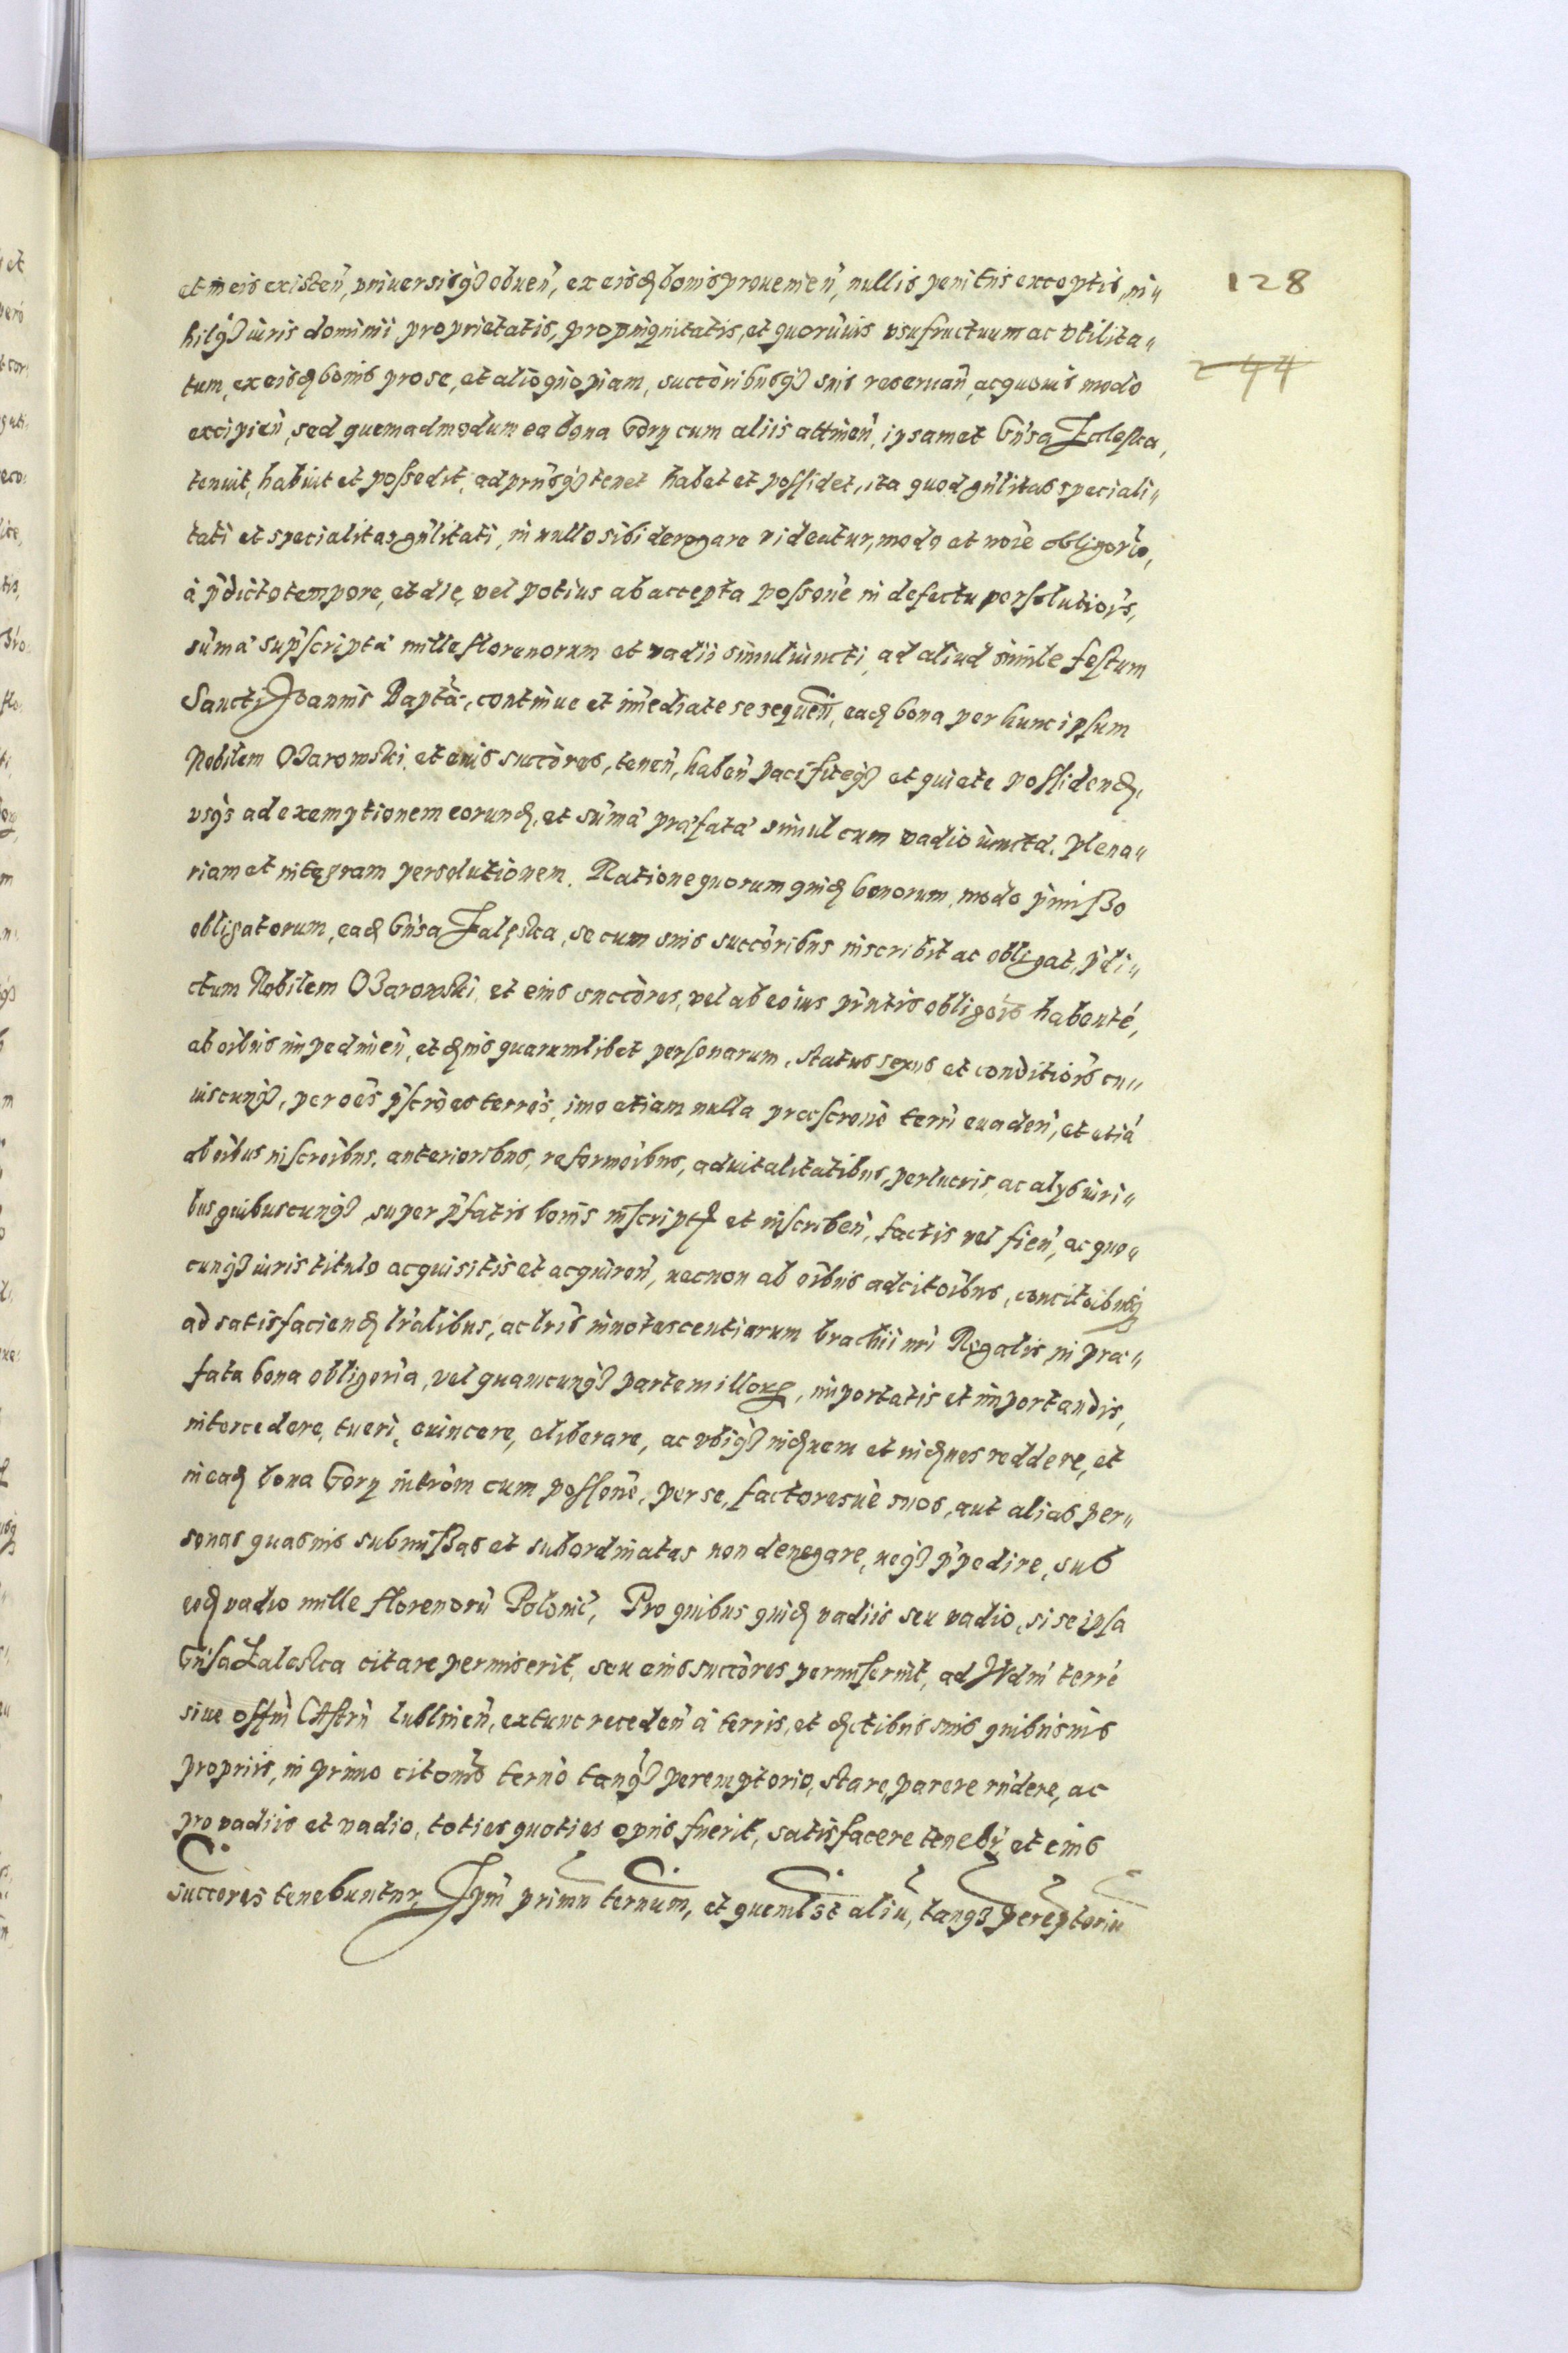 128
et in eis existen̄, vniversisq́ȝ obuen̄, ex eisd́ bonis prouenien̄, nullis penitus exceptis, ni„
hilq́ȝ iuris dominii proprietatis, propinquitatis, et quorūuis vsufructuum ac vtilita„
244
tum, ex eisd́ bonis pro se, et alio quopiam, succoribusq́ȝ suis reseruan̄, ac quouis modo
excipien̄, sed quemadmodum ea bona Gory cum aliis attinen̄, ipsamet Gn̄sa Zaleska,
tenuit, habuit et possedit, ad prn̄sq́ȝ tenet habet et possidet, ita quod gn̄litas speciali„
tati et specialitas gn̄litati, in nullo sibi derogare videatur, modo et noīe obligorio,
à p̄dicto tempore, et die, vel potius ab accepta possōne in defectu persolutiōis,
sūma sup̄scripta mille florenorum et vadii simul iuncti, ad aliud simile festum
Sancti Joannis Baptā, continue et im̄ediate se sequen̄, ead́ bona per hunc ipsum
Nobilem Ożarowski et eius succōres, tenen̄, haben̄ pacificeq́ȝ et quiete possidend́,
vsq́ȝ ad exemptionem eorund́, et sūma præfata simul cum vadio iuncta, plena„
riam et integram persolutionem. Ratione quorum quid́ bonorum, modo p̄misso
obligatorum, ead́ Gn̄sa Zaleska, se cum suis succōribus inscribit ac obligat, p̄di„
ctum Nobilem Ożarowski et eius succōres, vel ab eo ius prn̄tis obligōis habentē,
ab oībus impedimen̄, et d́nis quarumlibet personarum, status sexus et conditiōis cu„
iuscunq́ȝ, per oēs p̄scrōes terrēs, imo etiam nulla præscrōne terri euaden̄, et etiā
ab oībus inscrōibus, anterioribus, reformōibus, aduitalitatibus, perlucris, ac alys iuri„
bus quibuscunq́ȝ, super p̄fatis bonis inscript́ et inscriben̄, factis vel fien̄, ac quo„
cunq́ȝ iuris titulo acquisitis et acquiren̄, necnon ab oībus adcitōibus, concitōibusq́ȝ
ad satisfaciend́ lrālibus, ac lrīs innotescentiarum brachii nrī Regalis in præ„
fata bona obligoria, vel quamcunq́ȝ partem illorꝝ, importatis et importandis,
intercedere, tueri, euincere, eliberare, ac vbiq́ȝ ind́nem et ind́nes reddere, et
in ead́ bona Gory intrōm cum possōne, per se, factoresuè suos, aut alias per„
sonas quasuis submissas et subordinatas non denegare, neq́ȝ p̄pedire, sub
eod́ vadio mille florenorū Polonic̄, Pro quibus quid́ vadiis seu vadio, si se ipsa
Gn̄sa Zaleska citare permiserit, seu eius succōres permiserint, ad Iud̄m terrē
siue off̄m Cāstrn̄ Lublinen̄, extunc receden̄ à terris, et d́ctibus suis quibusuis
propriis, in primo citōnis ternō tanq́ȝ peremptorio, stare, parere rn̄dere, ac
pro vadiis et vadio, toties quoties opus fuerit, satisfacere tenebr̄ et eius
succores tenebuntur, Ipm̄ primū ternum, et quemlȝt aliū, tanqȝ perēptoriū